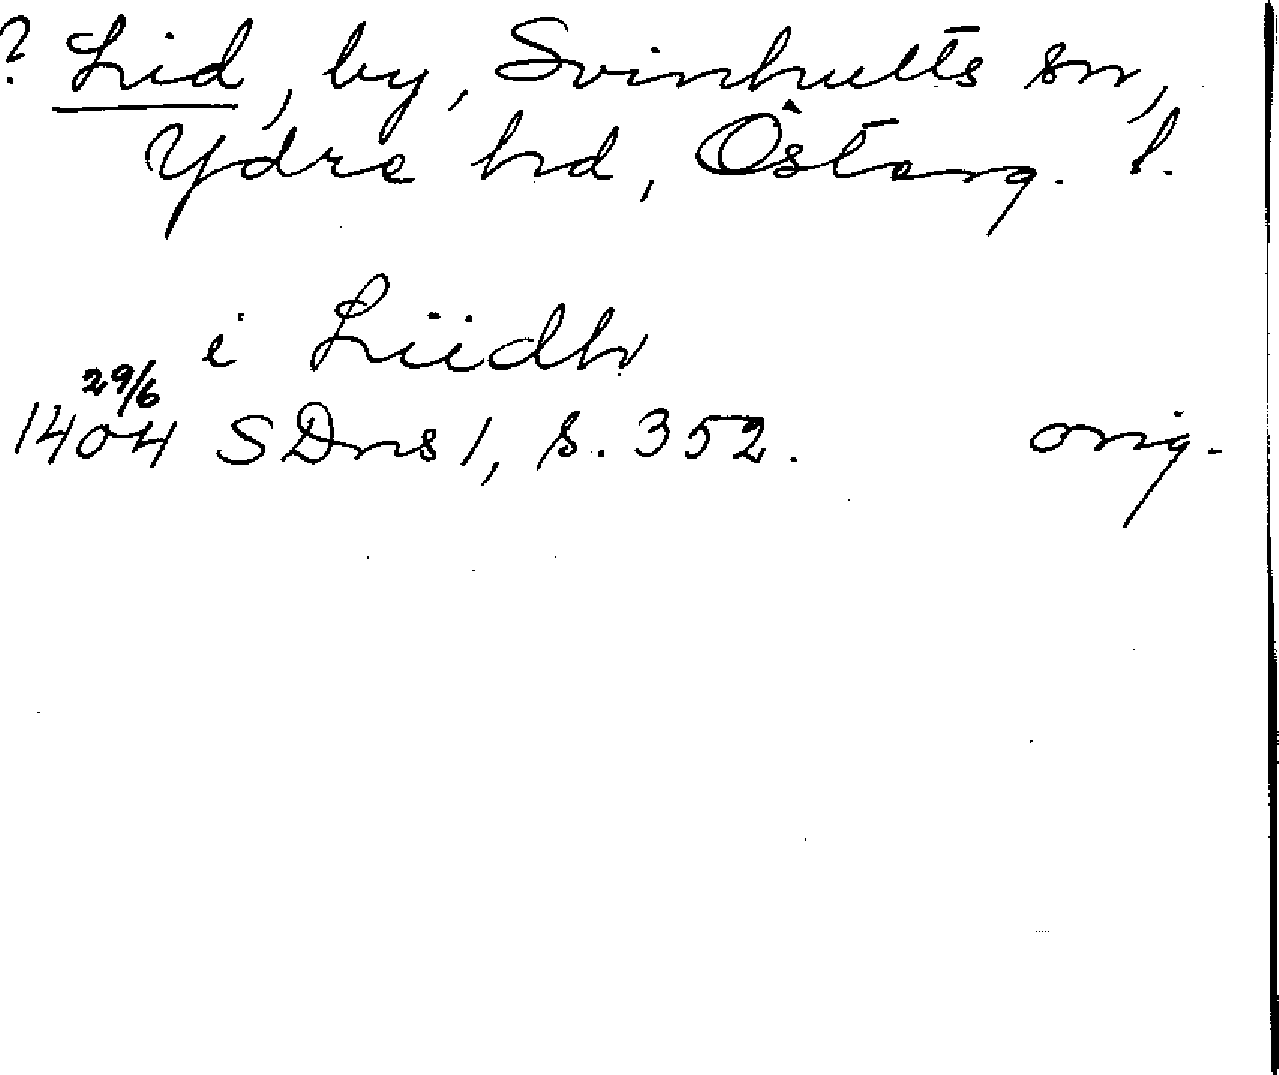 ? Lid, by, Svinhults sn,
Ydre hd, Österg. l.
i Liidh
29/6
1404 SDns 1, s. 352. orig.